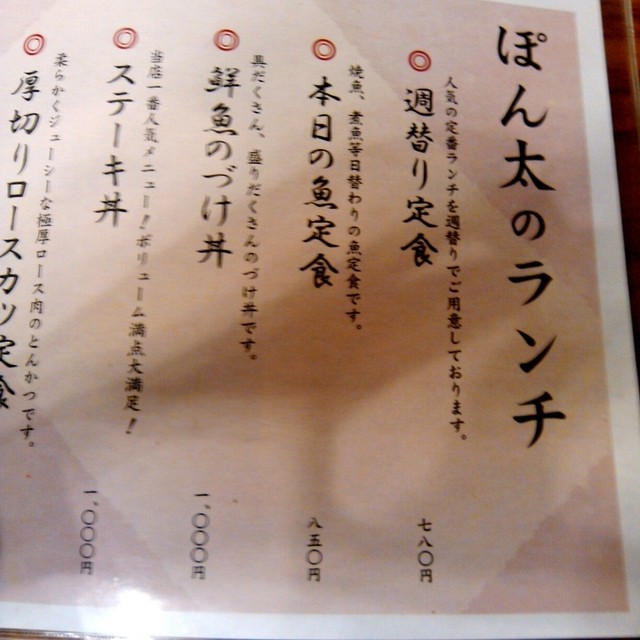 ぽん太のランチ
人気の定番ランチを週替りでご用意しております。
◎週替り定食
七八〇円
焼魚、煮魚等日替わりの魚定食です。
◎本日の魚定食
八五〇円
具だくさん、盛りだくさんのづけ丼です。
◎鮮魚のづけ丼
一、〇〇〇円
当店一番人気メニュー!ボリューム満点大満足!
◎ステーキ丼
一、〇〇〇円
柔らかくジューシーな極厚ロース肉のとんかつです。
◎厚切りロースカツ定食